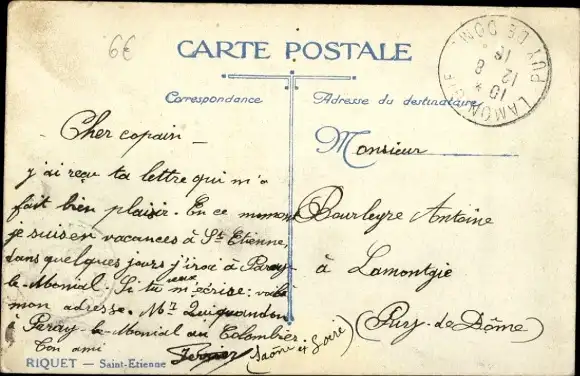 6€
CARTE POSTALE
Correspondance
Adresse du destinataire
PUY DE DOME
LAMONGIE
Cher copain –
j'ai reçu ta lettre qui m'a
fait bien plaisir. En ce moment
je suis en vacances à St Etienne,
dans quelques jours j'irai à Paray
le-Monial. Si tu veux m'écrire: voilà
mon adresse. Mr Quiquandon
à Paray-le-Monial au Colombier
(Saône et Loire)
Ton ami
Monsieur
Bourleyre Antoine
à Lamontgie
(Puy-de-Dôme)
RIQUET — Saint-Etienne